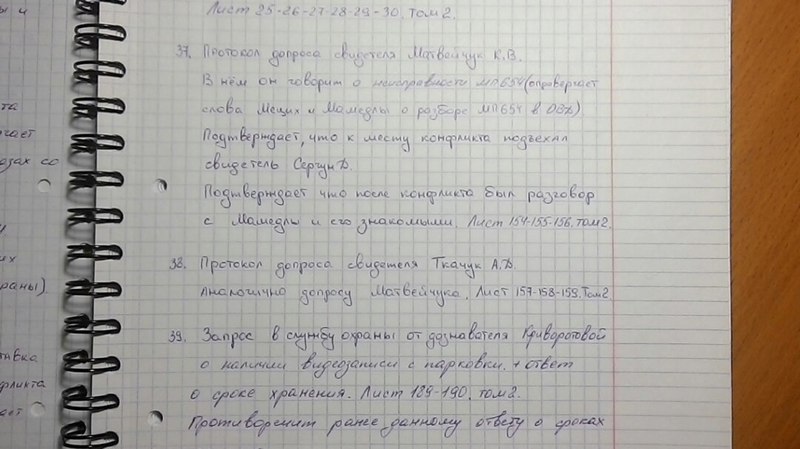 ы и
Лист 25-26-27-28-29-30. Том 2.
37. Протокол допроса свидетеля Матвейчук К.В.
В нём он говорит о неисправности МП654 (опровергает
та
слова Мсцих и Мамедлы о разборе МП654 в ОВД).
гает
Подтверждает, что к месту конфликта подъехал
озах со
свидетель Сергун Д.
Подтверждает что после конфликта был разговор
и
с Мамедлы и его знакомыми. Лист 154-155-156. том 2.
их
38. Протокол допроса свидетеля Ткачук А.Д.
раны).
Аналогично допросу Матвейчука. Лист 157-158-159. Том 2
39. Запрос в службу охраны от дознавателя Криворотовой
тавка
о наличии видеозаписи с парковки. + ответ
фликта
о сроке хранения. Лист 189-190. том 2.
ает
Противоречит ранее данному ответу о сроках